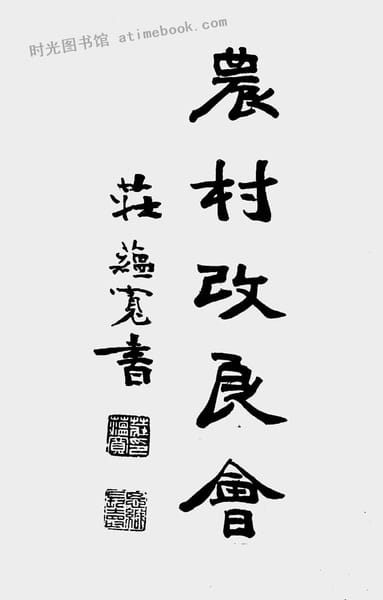 时光图书馆 atimebook.com
農村改良會
莊蘊寬書
莊蘊寬印